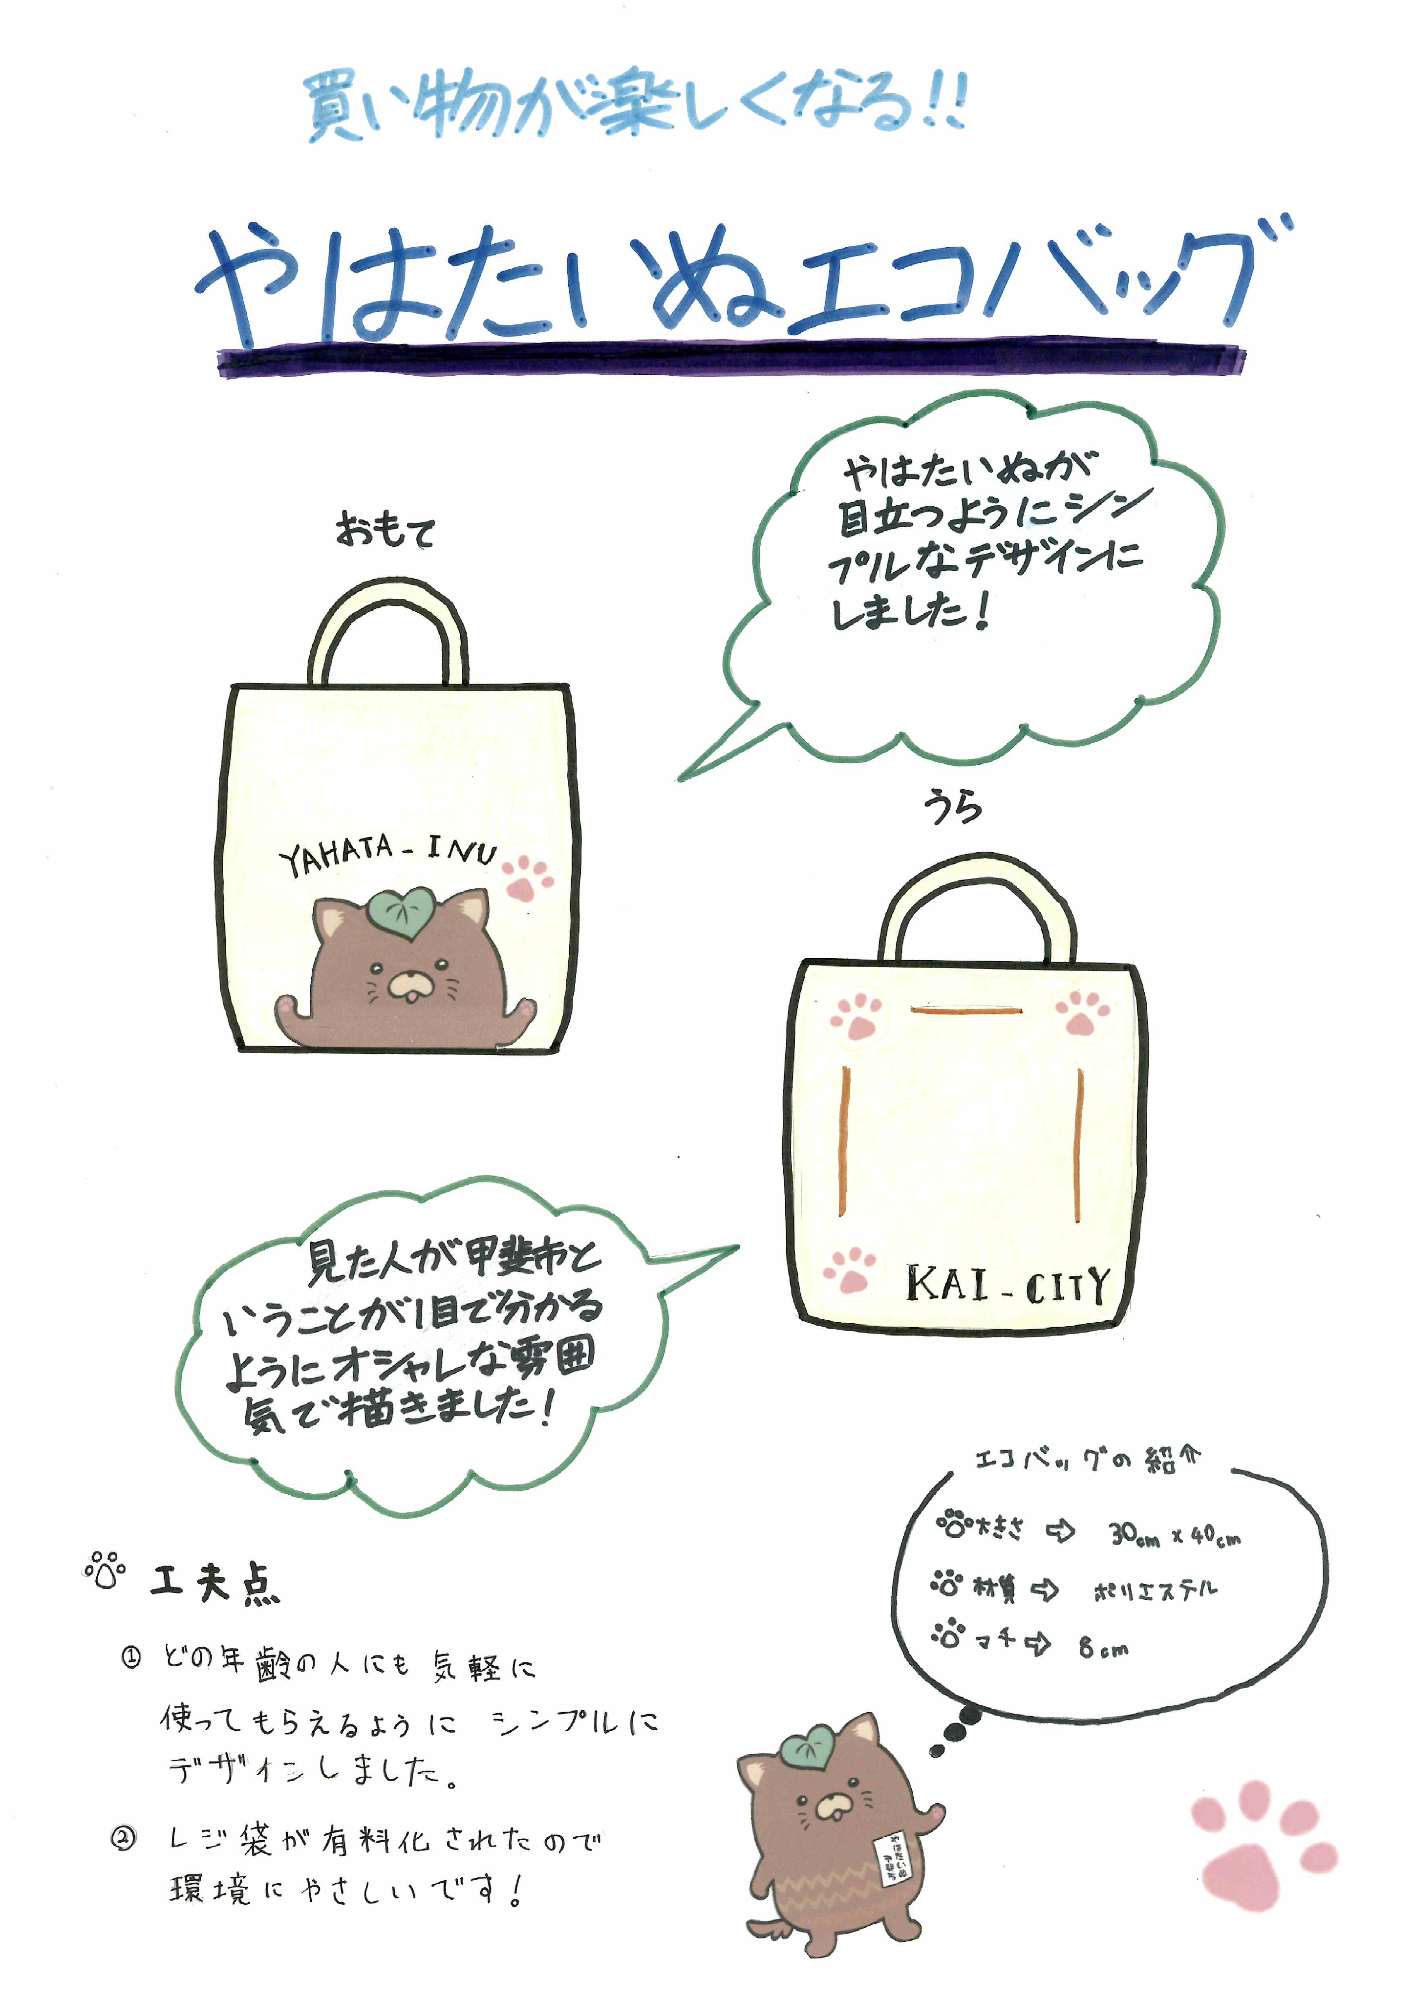 買い物が楽しくなる!!
やはたいぬエコバッグ
やはたいぬが
目立つようにシン
プルなデザインに
しました!
おもて
YAHATA-INU
うら
KAI-CITY
見た人が甲斐市と
いうことが1目で分かる
ようにオシャレな雰囲
気で描きました!
エコバッグの紹介
大きさ ⇨ 30cm x 40cm
材質 ⇨ ポリエステル
マチ ⇨ 8cm
工夫点
① どの年齢の人にも気軽に
使ってもらえるように シンプルに
デザインしました。
② レジ袋が有料化されたので
環境にやさしいです!
やはたいぬ
甲斐市